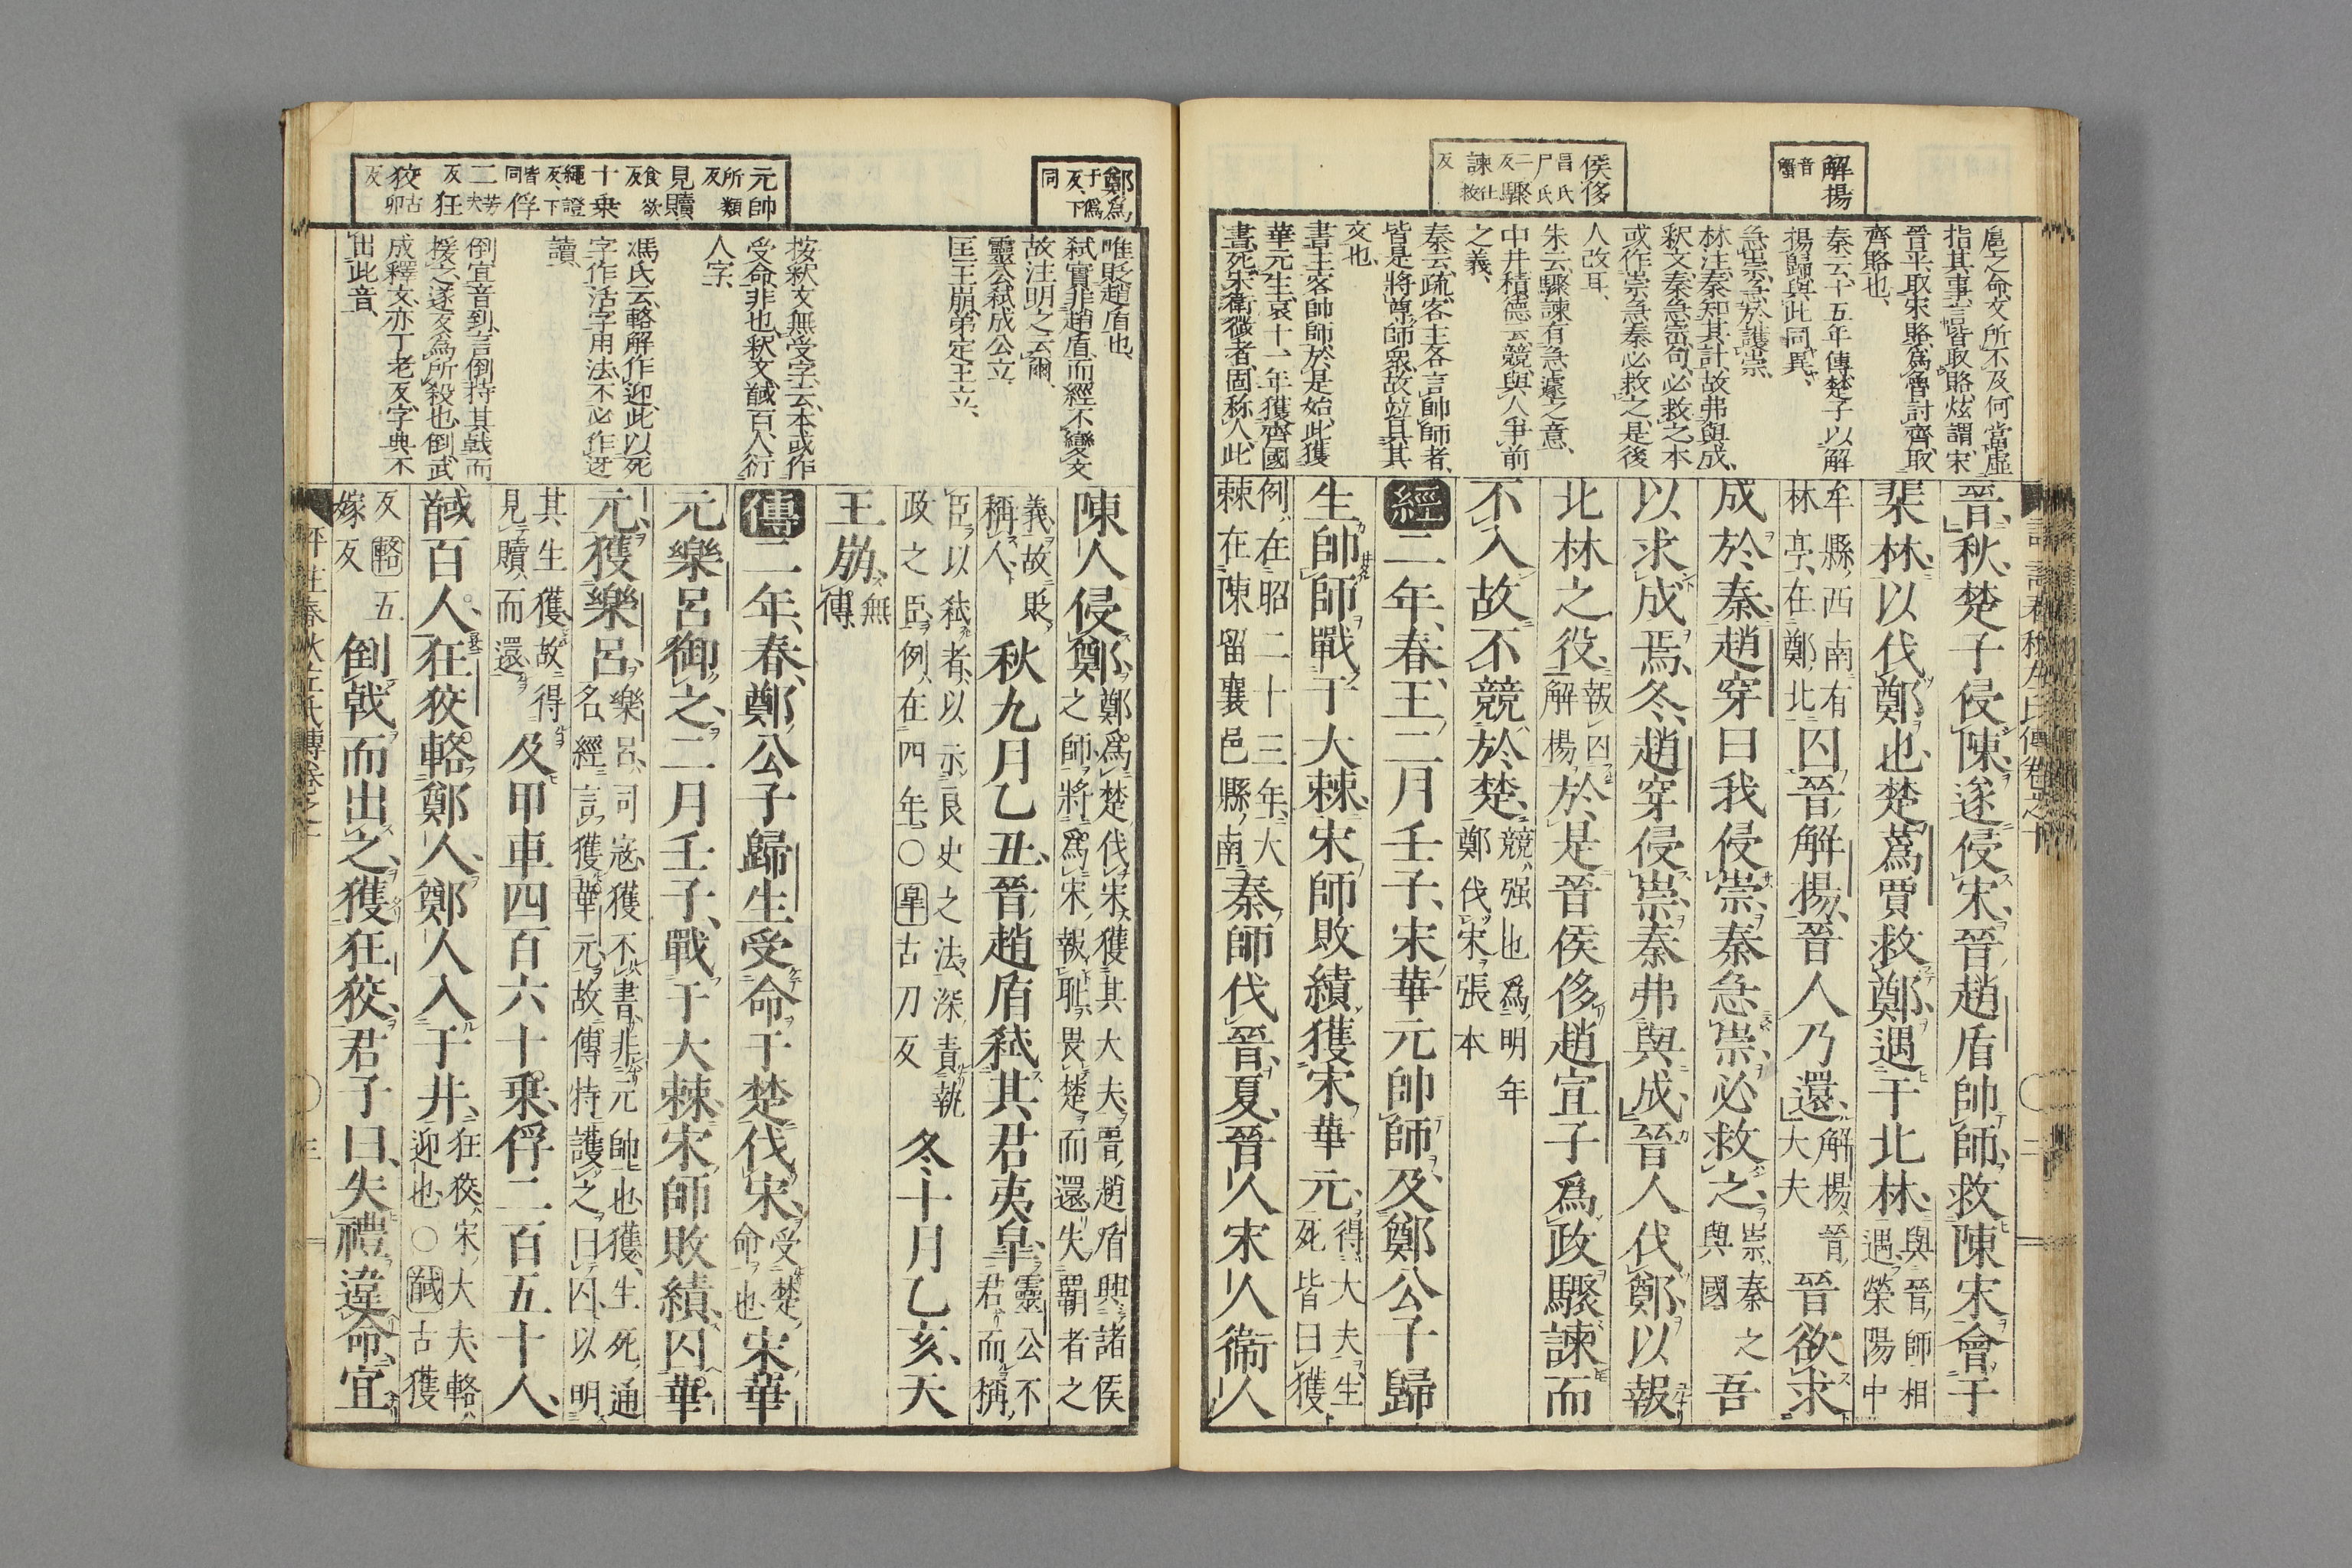 解揚
音蟹
侯侈
昌氏
尸氏
二反驟
諫
仕救
反
扈之命、文所不及、何當虛
指其事、言皆取賂、炫謂、宋
晉平、取宋賂、爲魯討齊、取
齊賂也、
秦云、十五年傳、楚子以解
揚歸、與此同異、
急崇、急於護崇、
林注、秦知其計、故弗與成、
釈文、秦急崇句、必救之、本
或作崇急秦必救之、是後
人改耳、
朱云、驟諫有急遽之意、
中井積德云、競與人爭前
之義、
秦云、疏、客主各言帥師者、
皆是將尊師衆、故竝具其
文也、
書主客帥師於是始、此獲
華元生、哀十一年獲齊國
書死、宋衛微者、固称人、此
晉、秋、楚子侵陳、遂侵宋、晉趙盾帥師、救陳宋、會于
棐林、以伐鄭也、楚蔿賈救鄭、遇于北林、與晉師相
遇、滎陽中
牟縣、西南有
林亭、在鄭北
囚晉解揚、晉人乃還、解揚、晉
大夫
晉欲求
成於秦、趙穿曰、我侵崇、秦急崇、必救之、崇、秦之
與國
吾
以求成焉、冬、趙穿侵崇、秦弗與成、晉人伐鄭、以報
北林之役、報囚
解揚
於是晉侯侈、趙宣子爲政、驟諫而
不入、故不競於楚、競、强也、爲明年
鄭伐宋張本
經二年、春、王二月壬子、宋華元帥師、及鄭公子歸
生帥師、戰于大棘、宋師敗績、獲宋華元、得大夫、生
死皆曰獲
例、在昭二十三年、大
棘在陳留襄邑縣南
秦師伐晉、夏、晉人宋人衛人
鄭爲
于僞
反、下
同
元帥
所類
反
見贖
食欲
反
十乗
繩證
反、下
皆同
俘
二
芳夫
反
狂
狡
古卯
反
唯貶趙盾也、
弑實非趙盾、而經不變文、
故注明之云爾、
靈公弑、成公立、
匡王崩、弟定王立、
按釈文無受字、云、本或作
受命、非也、釈文、馘百人、衍
人字、
馮氏云、輅解作迎、此以死
字作活字用法、不必作迓
讀、
倒宜音到、言倒持其戟而
援之、遂反爲所殺也、倒、武
成釋文、亦丁老反、字典不
出此音、
陳人侵鄭、鄭爲楚伐宋、獲其大夫、晉趙盾興諸侯
之師、將爲宋報恥、畏楚而還、失覇者之
義、故貶
稱人、
秋九月乙丑、晉趙盾弑其君夷皐、靈公不
君、而稱
臣以弑者、以示良史之法、深責執
政之臣、例、在四年、○皐古刀反
冬十月乙亥、天
王崩、無
傳、
傳二年、春、鄭公子歸生受命于楚伐宋、受楚
命也、
宋華
元樂呂御之、二月壬子、戰于大棘、宋師敗績、囚華
元、獲樂呂、樂呂、司寇、獲不書、非元帥也、獲、生死通
名、經言獲華元、故傳特護之曰囚、以明
其生獲、故得
見贖而還、
及甲車四百六十乘、俘二百五十人、
馘百人、狂狡輅鄭人、鄭人入于井、狂狡、宋大夫、輅
迎也、○馘古獲
反輅五
嫁反
倒戟而出之、獲狂狡、君子曰、失禮違命、宜